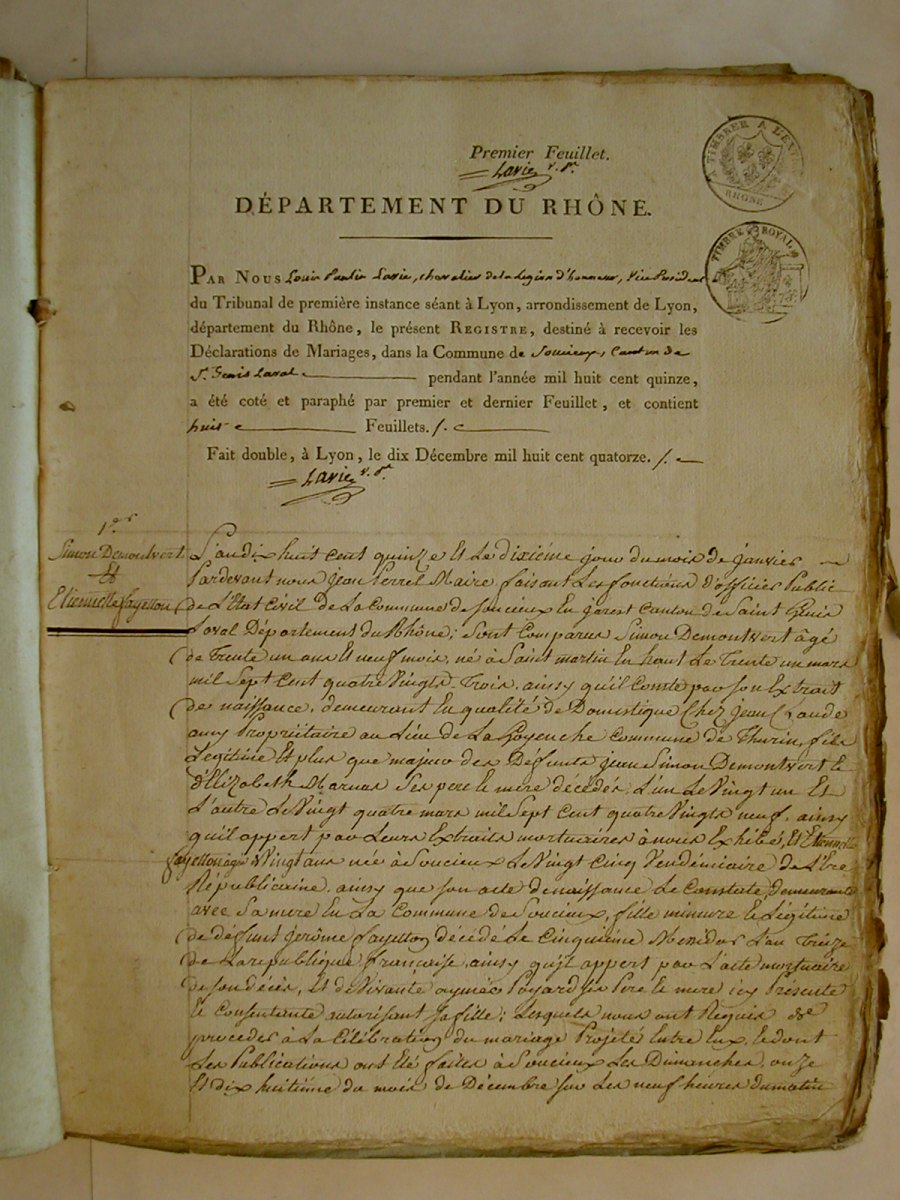 Premier Feuillet.
Lavie v. Pt.
A TIMBRER A L'EX
RHONE
DÉPARTEMENT DU RHÔNE.
TIMBRE ROYAL
PAR NOUS Louis Paulin Lavie, chevalier de la Légion d'honneur, Vice Président
du Tribunal de première instance séant à Lyon, arrondissement de Lyon,
département du Rhône, le présent REGISTRE, destiné à recevoir les
Déclarations de Mariages, dans la Commune de Soucieux, Canton de
St. Genis Laval pendant l'année mil huit cent quinze,
a été coté et paraphé par premier et dernier Feuillet, et contient
huit Feuillets. /.
Fait double, à Lyon, le dix Décembre mil huit cent quatorze. /.
Lavie v. Pt.
1er
Simon Demontvert
Et
Etiennette fayellon
L'an dix huit cent quinze Et Le dixiéme jour du mois de janvier
Pardevant nous jean Ferrel Maire faisant Les fonctions D'officier Public
de L'Etat Civil de La Commune de Soucieux En jarest Canton de Saint Genis
Laval Département du Rhône; Sont Comparus Simon Demontvert âgé
de Trente un ans Et neuf mois, né à Saint martin En haut Le Trente un mars
mil Sept Cent quatre Vingts Trois, ainsy qu'il Conste par Son Extrait
de naissance, demeurant En qualité de Domestique Chez Jean Claude
Propriétaire au Lieu de La Commune de Thurin, fils
Legitime Et plus que majeur des Défunts jean Simon Demontvert Et
d'Elizabeth Ses pere Et mere décédés; L'un Le Vingt un Et
L'autre Le Vingt quatre mars mil Sept Cent quatre Vingts neuf, ainsy
qu'il appert par Leurs Extraits mortuaires à nous Exhibé, Et Etiennette
fayellon agée de Vingt ans née à Soucieux Le Vingt Cinq Vendémiaire de L'Ere
Républicaine, ainsy que son acte de naissance Le Constate, demeurante
avec Sa mere En La Commune de Soucieux, fille mineure Et Légitime
de défunt Jerôme fayellon décédé Le Cinquième Messidor L'an Treize
de La republique française, ainsy qu'il appert par L'acte mortuaire
de son décès, Et de Vivante aymée Poyard Ses Pere Et mere icy Présente
Et Consentante autorisant sa fille; Lesquels nous ont Requis de
proceder à La Célébration du mariage Projeté Entre Eux, Et dont
Les Publications ont Eté faites à Soucieux Les Dimanches, onze
Et dix huitième du mois de Décembre sur Les neuf heures du matin